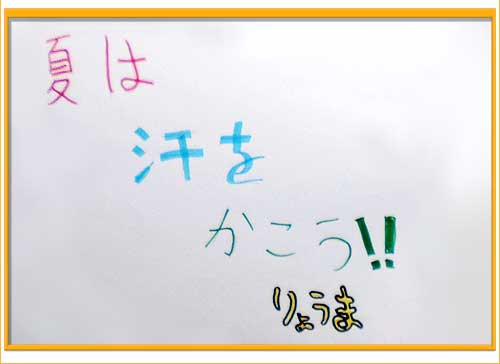 夏は
汗を
かこう!!
りょうま